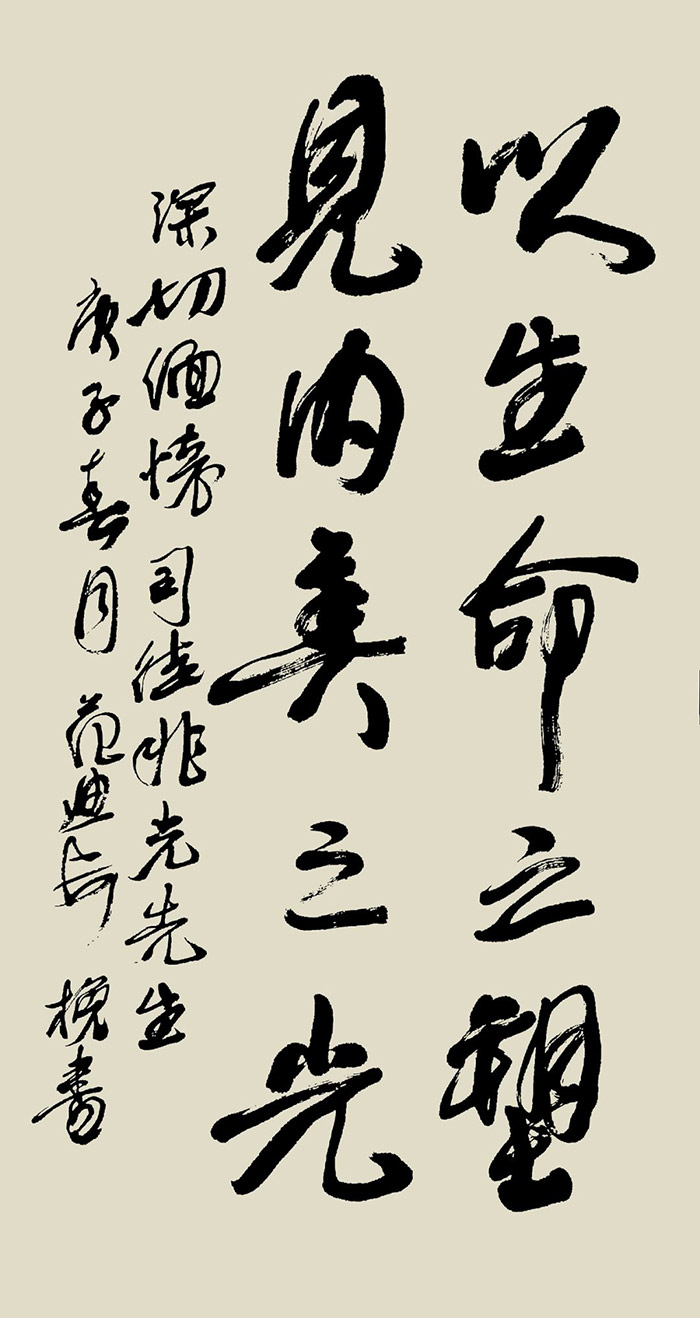 以生命之塑
見內美之光
深切缅懷司徒兆光先生
庚子春月范迪安挽書